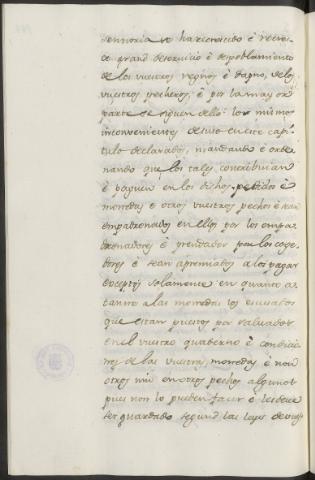 señoria se ha recrescido é recres-
ce grand deservicio é despoblamiento
de los vuestros regnos é dapno, de los
vuestros pecheros, é por la mayor
parte se siguen dello los mismos
inconvenientes de suso en este capi-
tulo declarados, mandando é orde
nando que los tales contribuian
é paguen en los dichos pedidos é
monedas é otros vuestros pechos é sean
empadronados en ellos por los empa-
dronadores é prendados por los coge-
dores é sean apremiados a los pagar
eceptos solamente en quanto a-
tanne a las monedas los escusados
que estan puestos por salvados
en el vuestro quaderno é condicio
nes de las vuestras monedas é non
otros nin en otros pechos algunos
pues non lo pueden facer é les debe
ser guardado segund las leys de vues-